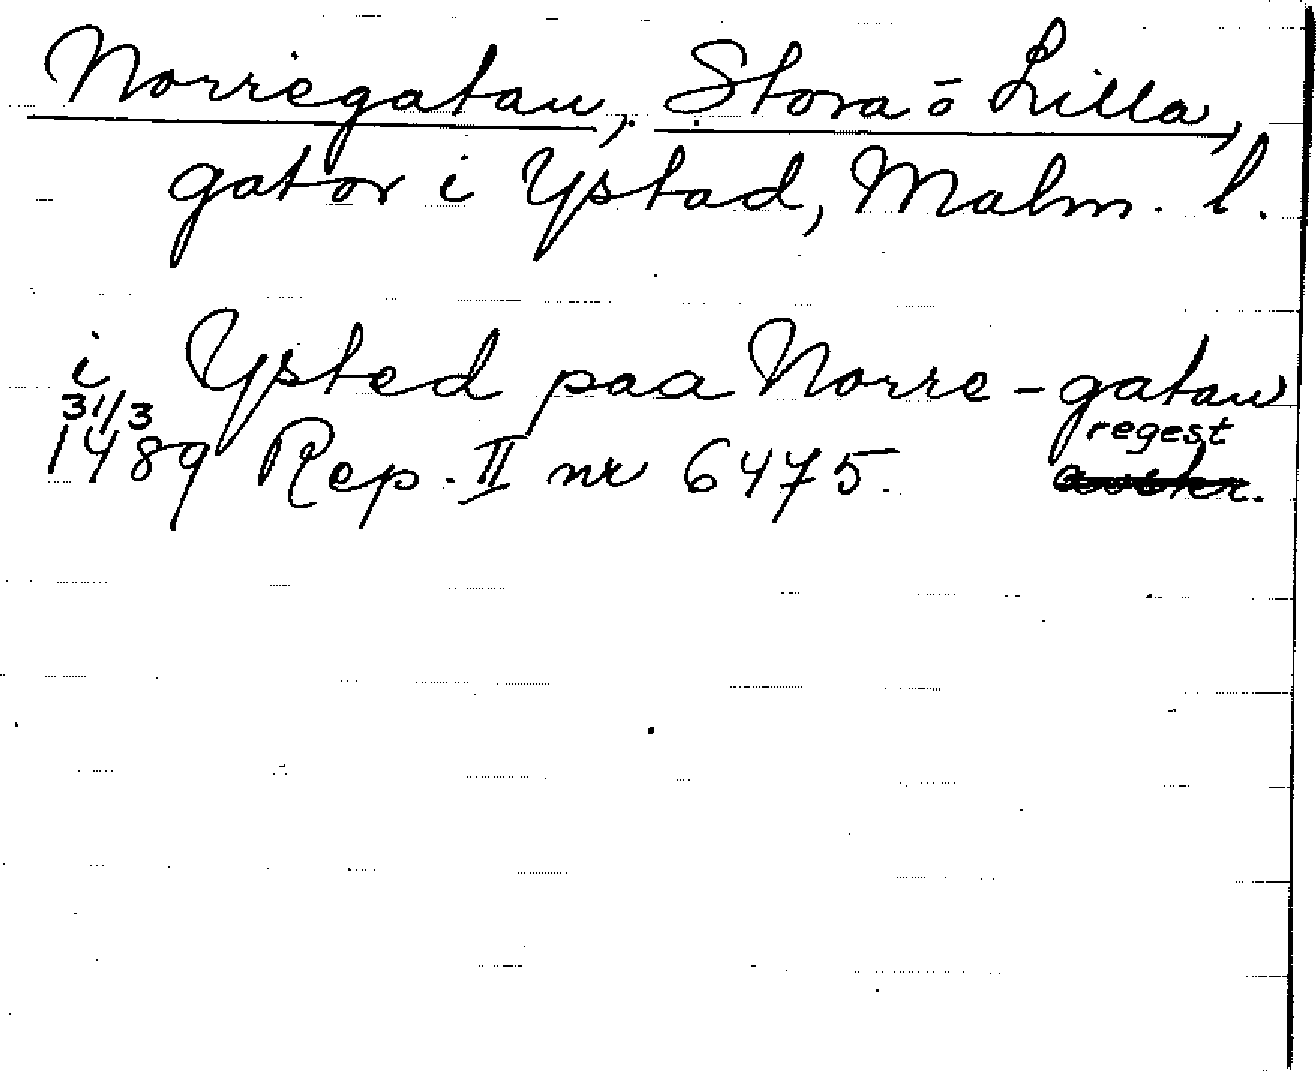 Norregatan, Stora o Lilla,
gator i Ystad, Malm. l.
i Ysted paa Norre-gatan
31/3
1489 Rep. II nr 6475.
regest